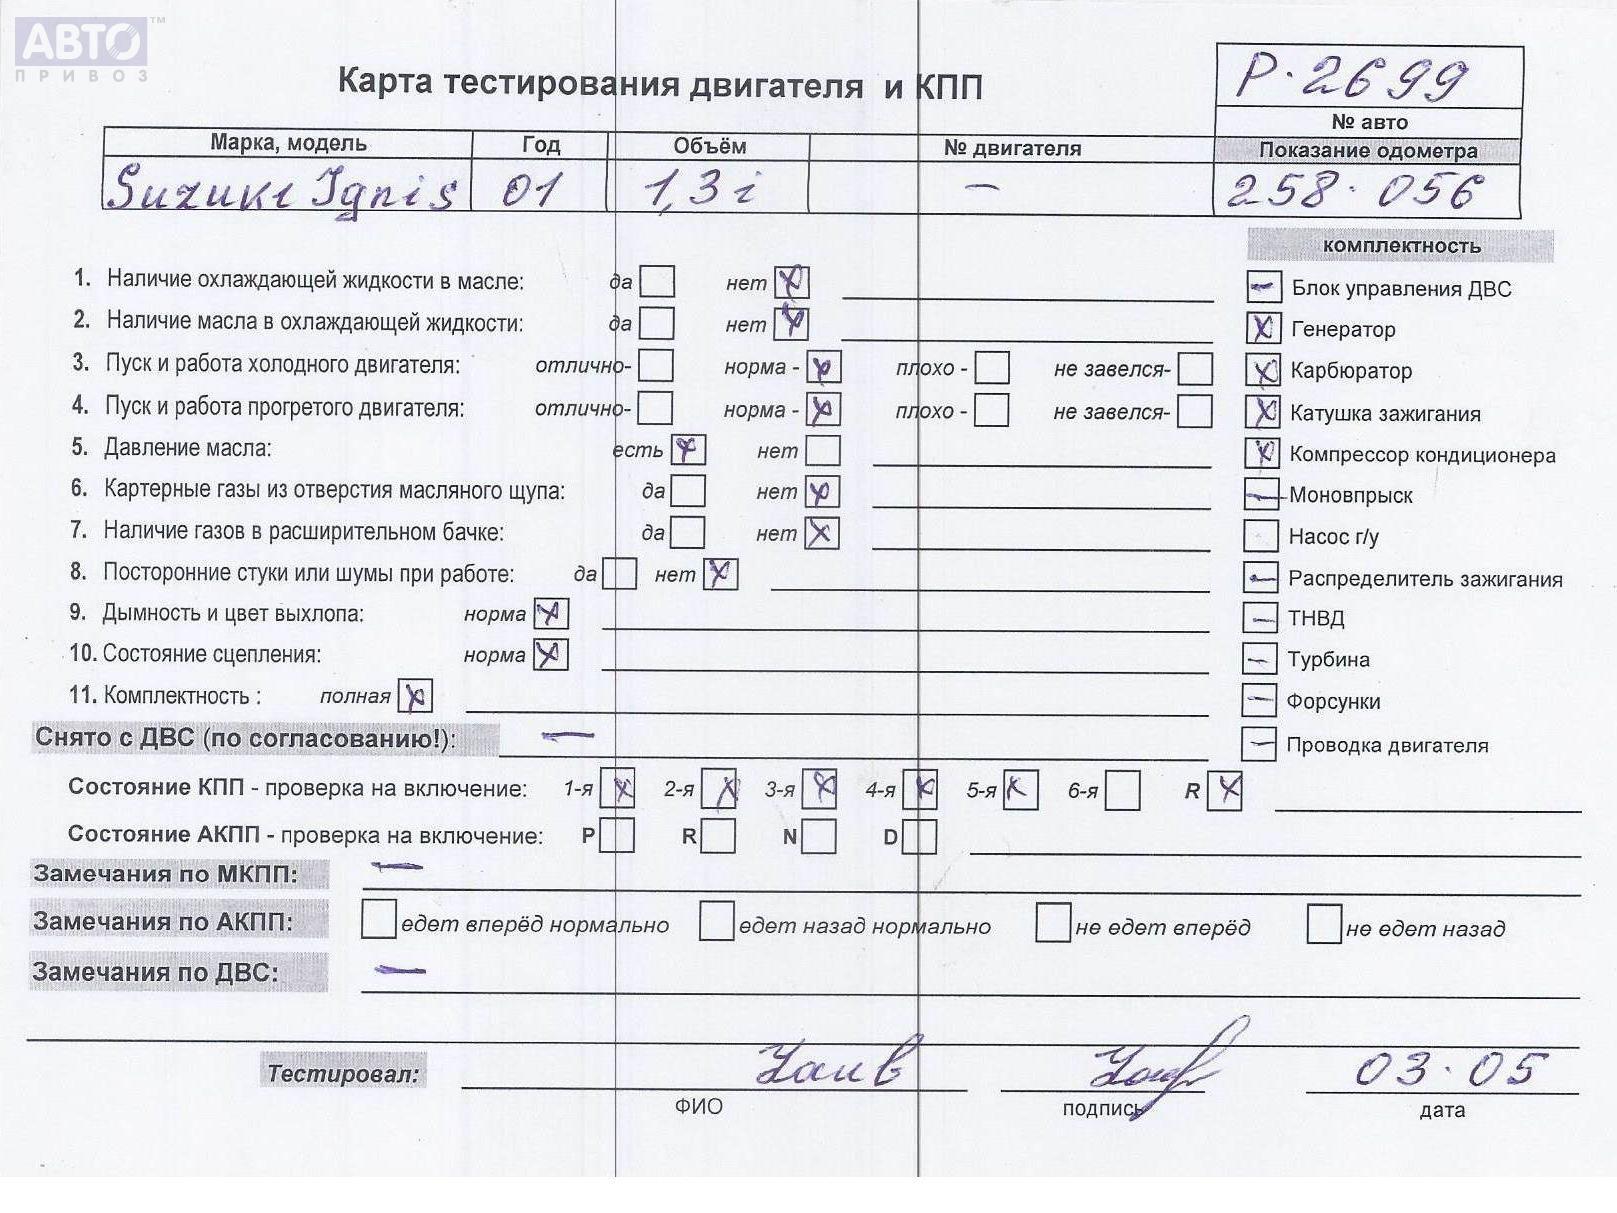 АВТО™
ПРИВОЗ
Карта тестирования двигателя и КПП
Р·2699
№ авто
Марка, модель Год Объём № двигателя Показание одометра
Suzuki Ignis 01 1,3i — 258·056
комплектность
1. Наличие охлаждающей жидкости в масле: да нет
Блок управления ДВС
2. Наличие масла в охлаждающей жидкости: да нет
Генератор
3. Пуск и работа холодного двигателя: отлично- норма - плохо - не завелся-
Карбюратор
4. Пуск и работа прогретого двигателя: отлично- норма - плохо - не завелся-
Катушка зажигания
5. Давление масла: есть нет
Компрессор кондиционера
6. Картерные газы из отверстия масляного щупа: да нет
Моновпрыск
7. Наличие газов в расширительном бачке: да нет
Насос г/у
8. Посторонние стуки или шумы при работе: да нет
Распределитель зажигания
9. Дымность и цвет выхлопа: норма
ТНВД
10. Состояние сцепления: норма
Турбина
11. Комплектность : полная
Форсунки
Снято с ДВС (по согласованию!): —
Проводка двигателя
Состояние КПП - проверка на включение: 1-я 2-я 3-я 4-я 5-я 6-я R
Состояние АКПП - проверка на включение: P R N D
Замечания по МКПП: —
Замечания по АКПП: едет вперёд нормально едет назад нормально не едет вперёд не едет назад
Замечания по ДВС: —
Тестировал: 03.05
ФИО подпись дата